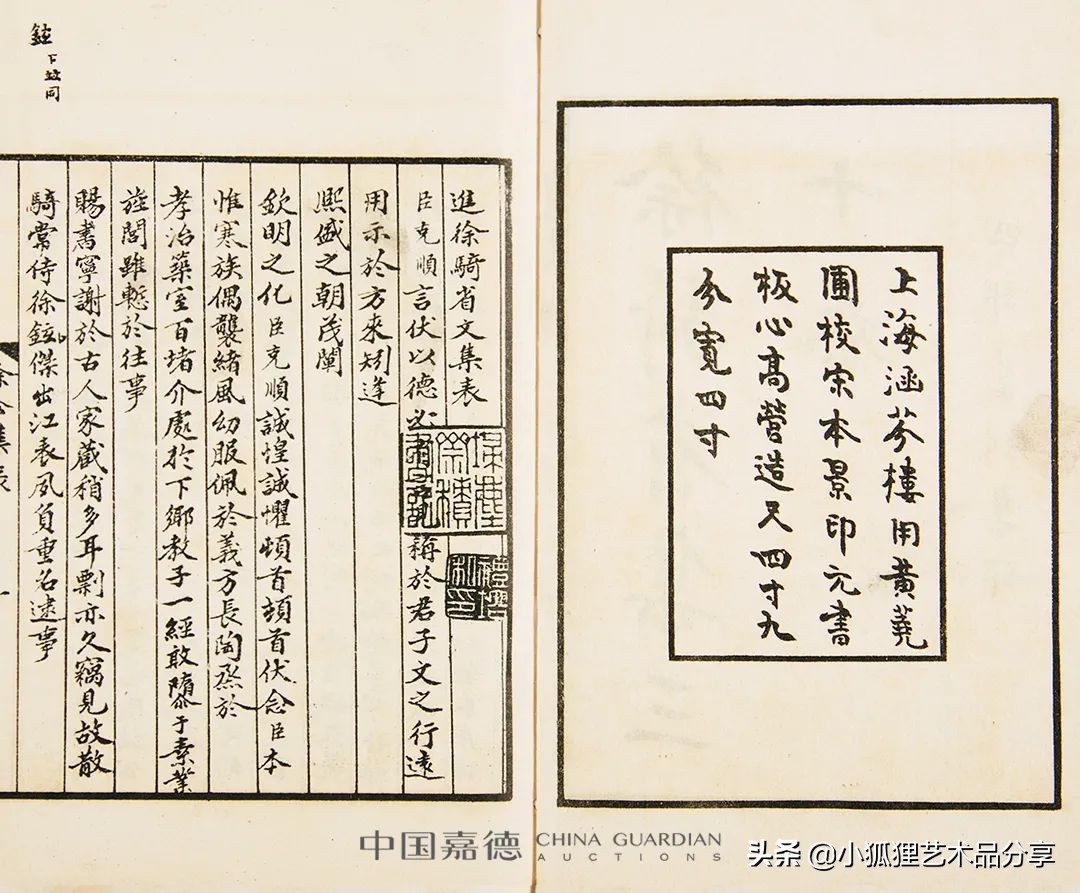 上海涵芬樓用黃蕘
圃校宋本景印元書
板心高營造尺四寸九
分寬四寸
進徐騎省文集表
臣克順言伏以德必 稱於君子文之行遠
用示於方來矧逢
熙盛之朝茂闡
欽明之化臣克順誠惶誠懼頓首頓首伏念臣本
惟寒族偶襲緒風幼服佩於義方長陶烝於
孝治築室百堵介處於下鄉教子一經敢隳于素業
旌閭雖慙於往事
賜書寧謝於古人家藏稍多耳剽亦久竊見故散
騎常侍徐鉉傑出江表夙負重名逮事
鉉下並同
中国嘉德 CHINA GUARDIAN
AUCTIONS
头条 @小狐狸艺术品分享